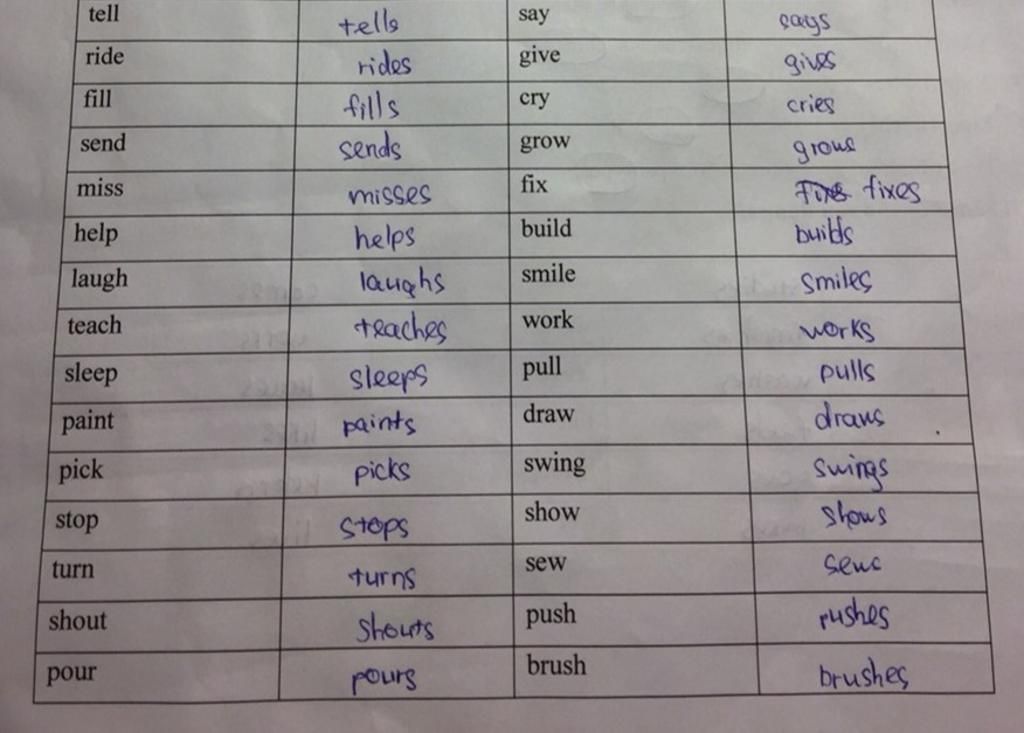 tell tells say says
ride rides give gives
fill fills cry cries
send sends grow grows
miss misses fix fixes
help helps build builds
laugh laughs smile smiles
teach teaches work works
sleep sleeps pull pulls
paint paints draw draws
pick picks swing swings
stop stops show shows
turn turns sew sews
shout shouts push pushes
pour pours brush brushes